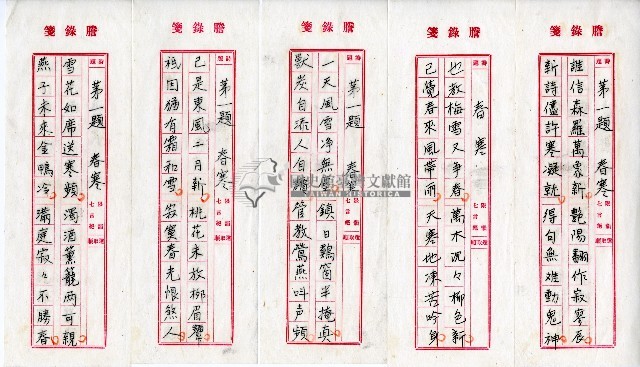 謄錄箋
第一題 春寒
誰信森羅萬象新 艷陽翻作寂寥辰
新詩儘許寒凝就 得句無難動鬼神
謄錄箋
春寒
也教梅雪又爭春 萬木沉々柳色新
已覺春來風帶雨 天寒地凍苦吟身
謄錄箋
第一題 春寒
一天風雪净無 鎮日 窗半掩
獸炭自添人自 管教鶯燕叫声頻
謄錄箋
第一題 春寒
已是東風二月新 桃花未放柳眉顰
祇因猶有霜和雪 寂寞春光恨煞人
謄錄箋
第一題 春寒
雪花如席送寒頻 濁酒熏籠两可親
燕子未來金鴨冷 滿庭寂々不勝春
國史館臺灣文獻館
TAIWAN HISTORICA